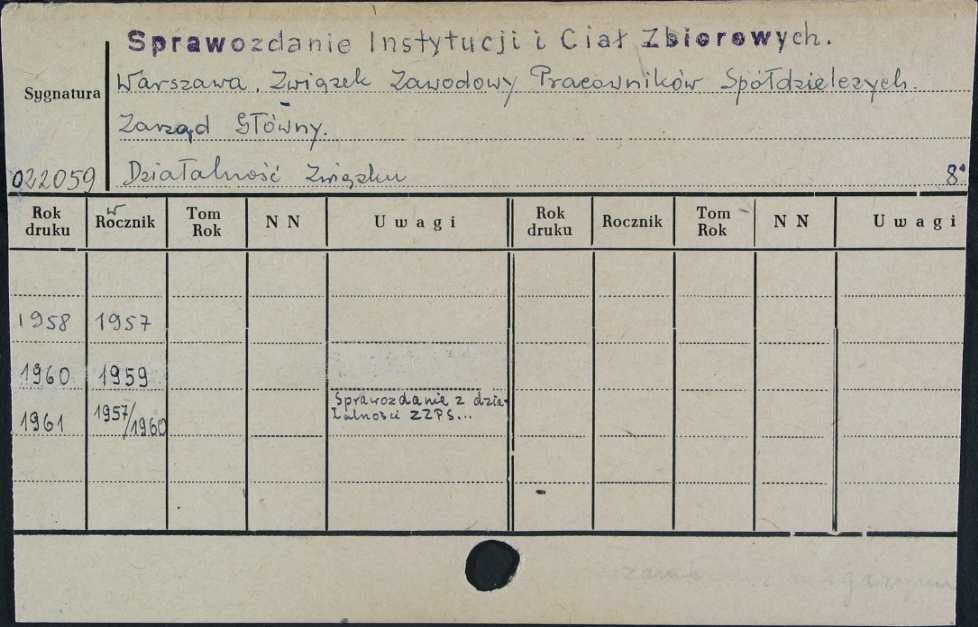 Sprawozdanie Instytucji i Ciał Zbiorowych.
Warszawa. Związek Zawodowy Pracowników Spółdzielczych.
Sygnatura
Zarząd Główny.
022059 Działalność Związku 8°
Rok druku Rocznik Tom Rok N N Uwagi Rok druku Rocznik Tom Rok N N Uwagi
1958 1957
1960 1959
1961 1957/1960 Sprawozdanie z dzia-
łalności ZZPS...